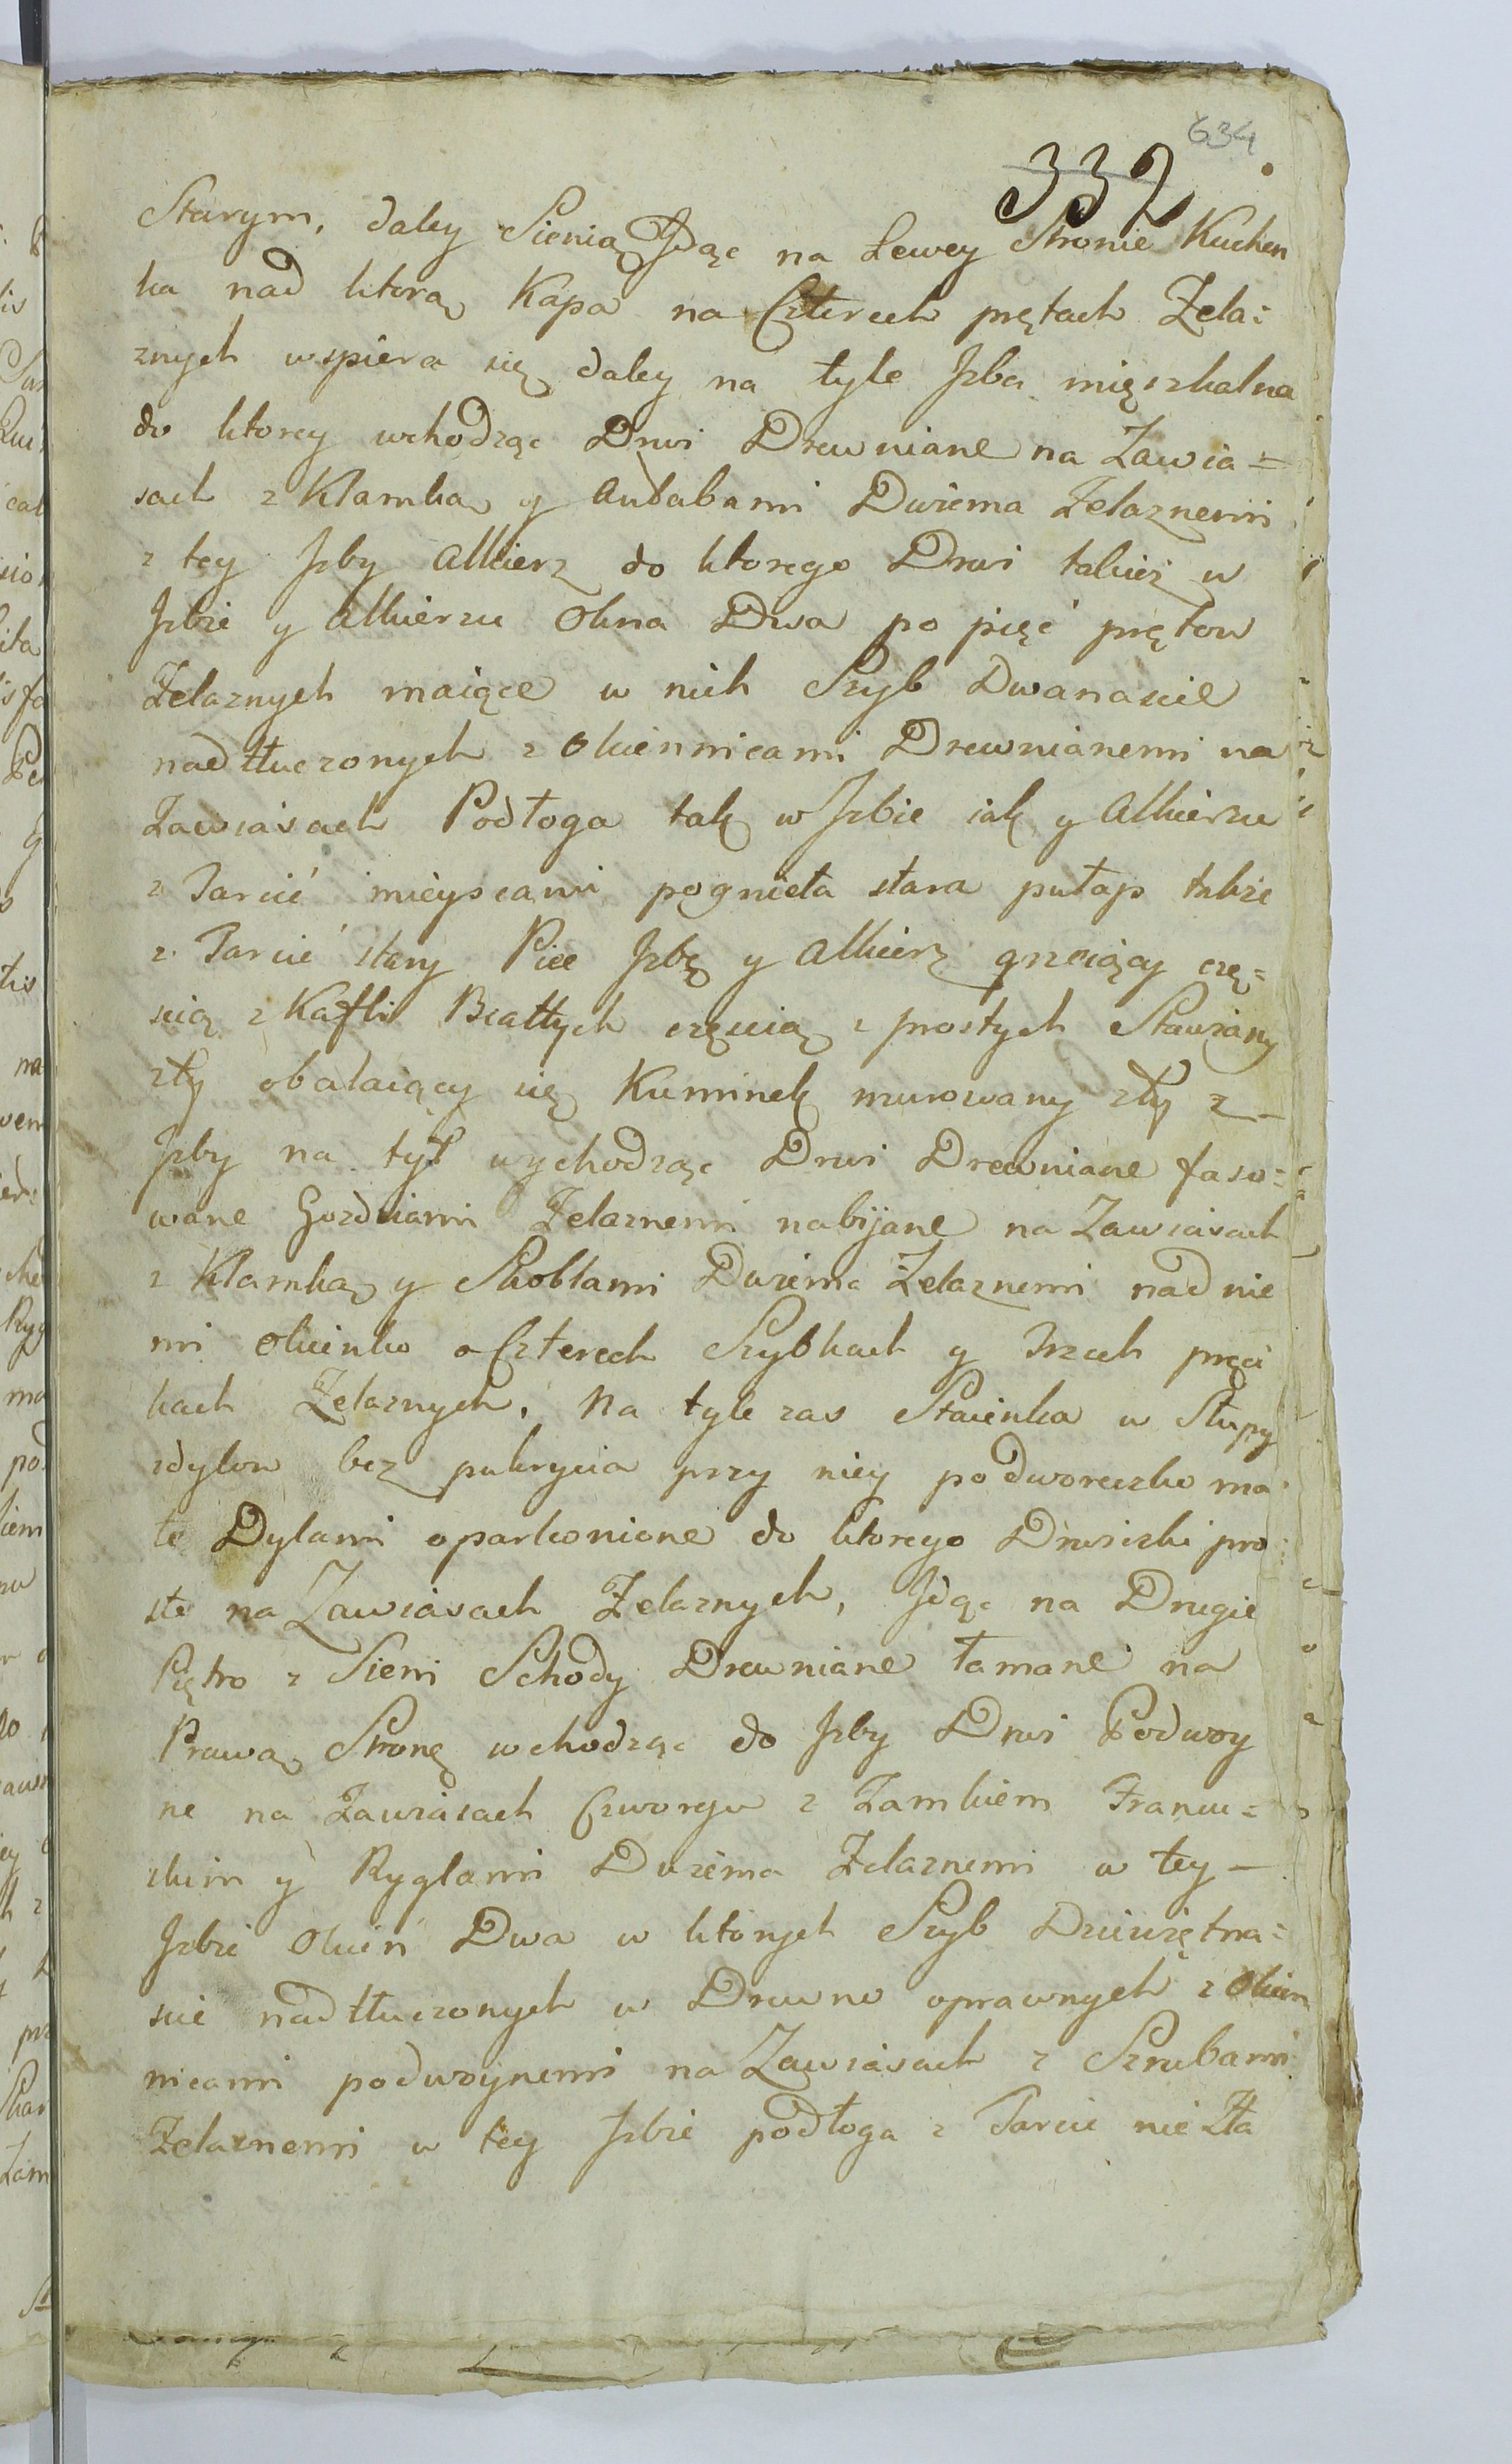 634
332
Starym, daley Sienią Jdąc na Lewey Stronie Kuchen
ka nad ktorą Kapa na Czterech prętach Zela=
znych wspiera się daley na tyle Jzba mięszkalna
do ktorey wchodząc Drwi Drewniane na Zawia=
sach z Klamką y Antabami Dwiema Zelaznemi
z tey Jzby Alkierz do ktorego Drwi takież w
Jzbie y Alkierzu Okna Dwa po pięć prętow
Zelaznych maiące w nich Szyb Dwanascie
nadtłuczonych z Okiennicami Drewnianemi na
Zawiasach Podłoga tak w Jzbie iak y Alkierzu
z Tarcić mieyscami pognieła stara pułap także
z Tarcić stary Piec Jzbę y Alkierz grzeiący czę=
scią z Kafli Białłych częscią z prostych Stawiany
zły obalaiący się Kuminek murowany zły z
Jzby na tył wychodząc Drwi Drewniane faso=
wane Gozdziami Zelaznemi nabijane na Zawiasach
z Klamką y Skoblami Dwiema Zelaznemi nad nie
mi okienko o Czterech Szybkach y Trzech pręci
kach Zelaznych. Na tyle zas Staienka w Słupy
zdylow bez pukrycia przy niey podworeczko ma
łe Dylami oparkonione do ktorego Drwiczki pro
ste na Zawiasach Zelaznych, Jdąc na Drugie
Piętro z Sieni Schody Drewniane łamane na
Prawą Stronę wchodząc do Jzby Drwi Podwoy
ne na Zawiasach Czworgu z Zamkiem Francu=
skim y Ryglami Dwiema Zelaznemi w tey
Jzbie Okien Dwa w ktorych Szyb Dziewiętna=
scie nadtłuczonych w Drewno oprawnych z Okien
nicami podwoynemi na Zawiasach z Szrubami
Zelaznemi w tey Jzbie podłoga z Tarcic nie Zła